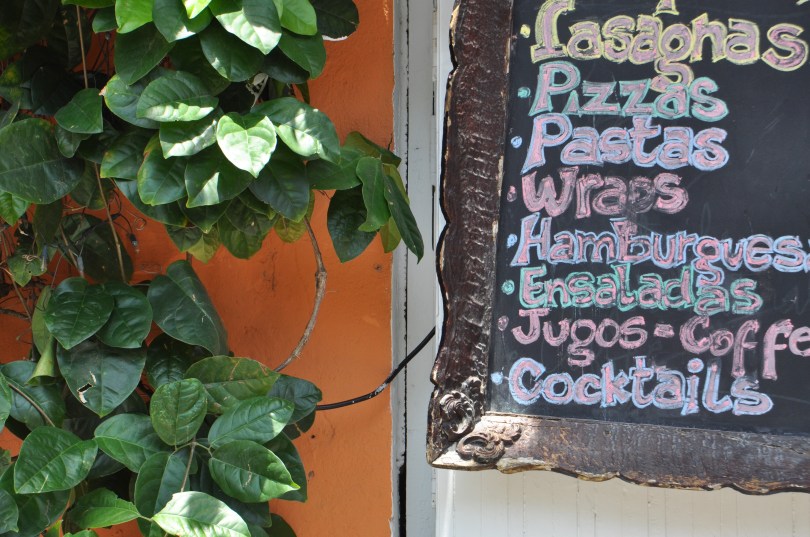 Lasagnas
Pizzas
Pastas
Wraps
Hamburgues
Ensaladas
Jugos - Coffe
Cocktails